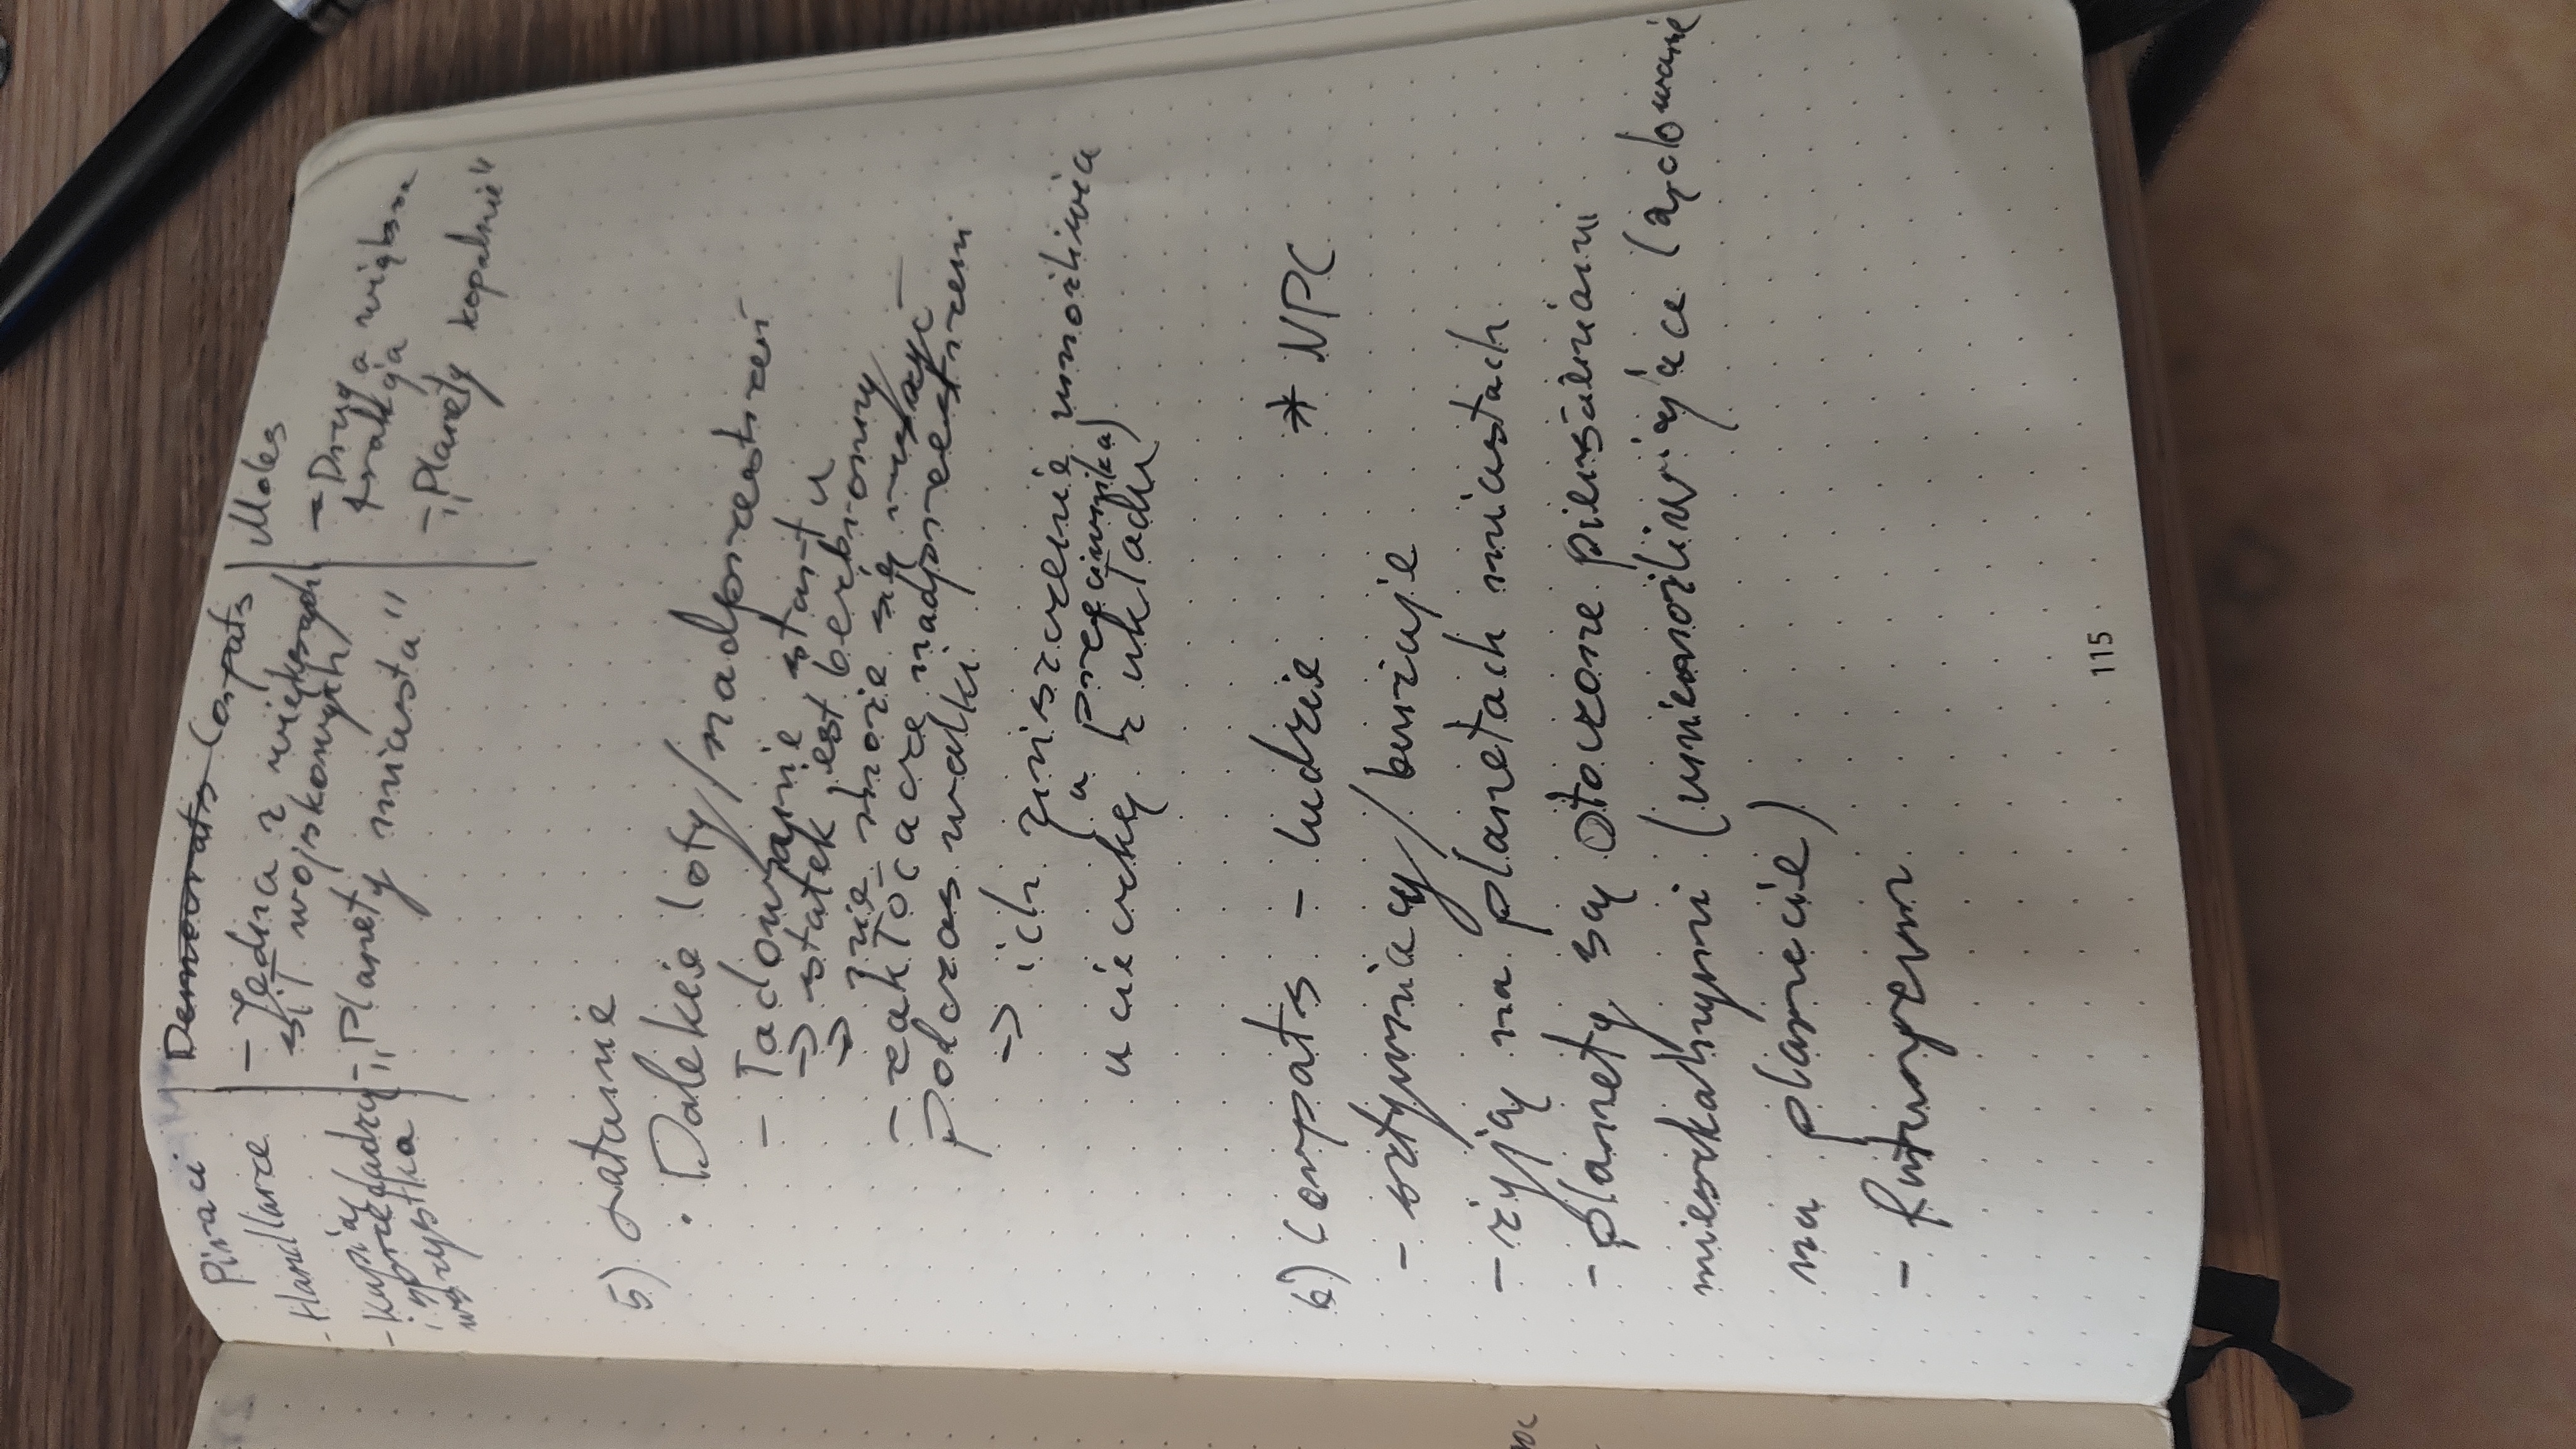 Piraci
- Handlarze
- Kupią
i sprzedadzą
wszystko
~~Democrats~~ Corpats
- Jedna z większych
sił wojskowych
- „Planety miasta"
Moles
- Druga większa
frakcja
- „Planety kopalnie"
5) Latanie
• Dalekie loty/nadprzestrzeń
- Ładowanie startu
-> statek jest bezbronny
-> nie może się ruszyć
- zakłócacze nadprzestrzeni
podczas walki
-> ich zniszczenie umożliwia
(u przeciwnika)
ucieczkę z układu
6) Corpats - ludzie * NPC
- sztywniacy/burżuje
- żyją na planetach miastach
- planety są otoczone pierścieniami
mieszkalnymi (uniemożliwiające lądowanie
na planecie)
- futuryzm
115